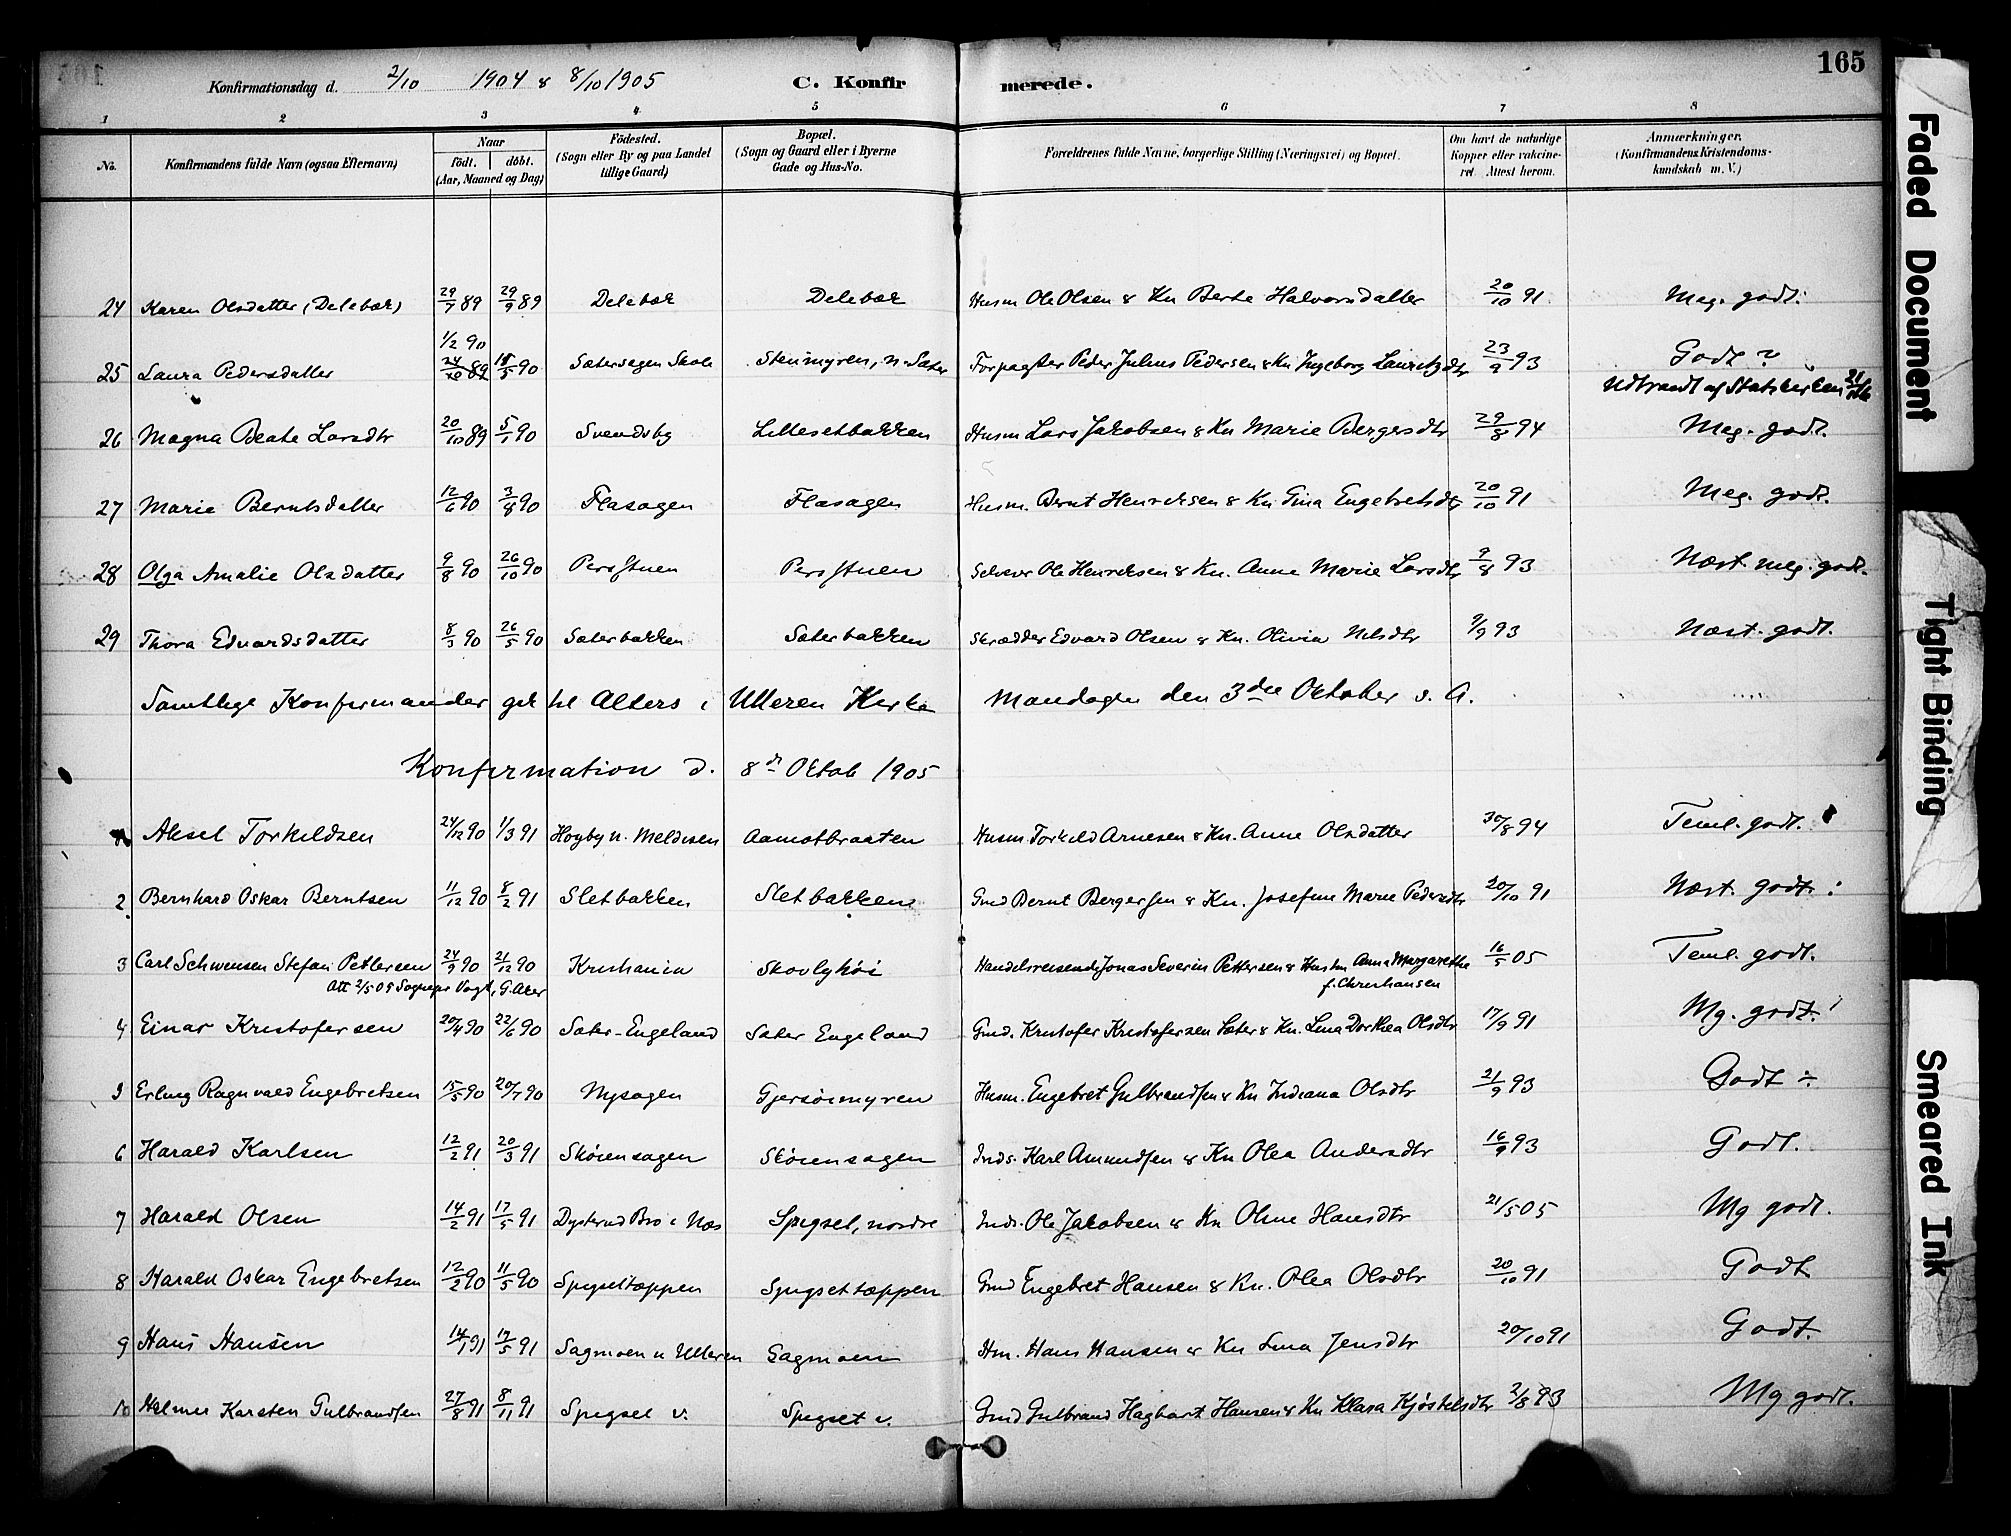 165
Konfirmationsdag d. 2/10 1904 & 8/10 1905 C. Konfirmerede.
1 2 3 4 5 6 7 8
No. Konfirmandens fulde Navn (ogsaa Efternavn) Naar födt. döbt. (Aar, Maaned og Dag) Födested. (Sogn eller By og paa Landet tillige Gaard) Bopæl. (Sogn og Gaard eller i Byerne Gade og Hus-No. Forældrenes fulde Navne, borgerlige Stilling (Næringsvei) og Bopæl. Om havt de naturlige Kopper eller vakcineret Attest herom. Anmærkninger. (Konfirmandens Kristendomskundskab m. V.)
24 Karen Olsdatter (Delebæk) 29/7 89 29/9 89 Delebæk Delebæk Husm Ole Olsen & Kn Berte Halvorsdatter 20/10 91 Meg. godt.
1/2 90
25 Laura Pedersdatter 24/10 89 15/5 90 Sætersagen Skole Stenmyren, n. Sæter Forpagter Peder Julius Pedersen & Kn Ingeborg Lauritzdtr 23/9 93 Godt ?
Udtraadt af Statskirken
26 Magna Beate Larsdtr 20/10 89 5/1 90 Svendsby Lillesetbakken Husm Lars Jakobsen & Kn Marie Bergersdtr 29/8 94 Meg. godt.
27 Marie Berntsdatter 12/6 90 3/8 90 Flasagen Flasagen Husm. Bernt Henriksen & Kn Gina Engebretsdtr 20/10 91 Meg. godt.
28 Olga Amalie Olsdatter 9/8 90 26/10 90 Persstuen Persstuen Selveier Ole Henriksen & Kn. Anne Marie Larsdtr 9/8 93 Næst. meg. godt.
29 Thora Edvardsdatter 8/3 90 26/5 90 Sæterbakken Sæterbakken Skrædder Edvard Olsen & Kn. Olivia Nilsdtr 9/9 93 Næst. godt.
Samtlige Konfirmander gik til Alters i Ulleren Kirke Mandagen den 3die Oktober s. A.
Konfirmation d. 8de Oktob 1905
1 Aksel Torkildsen 24/12 90 1/3 91 Høgby n. Aamotbraaten Husm. Torkild Arnesen & Kn. Anne Olsdatter 30/8 94 Teml. godt.
2 Bernhard Oskar Berntsen 11/12 90 8/2 91 Sletbakken Sletbakken Gmd Bernt Bergersen & Kn. Josefine Marie Pedersdtr 20/10 91 Næst. godt.
3 Carl Schwensen Stefan Pettersen 24/9 90 21/12 90 Kristiania Skovlyhøi Handelsreisende Jonas Severin Pettersen & Hustru Anna Margarethe 16/5 05 Teml. godt.
Att 2/5 05 Sognepr Vogt, Ø. Aker f. Christiansen
4 Einar Kristofersen 20/4 90 22/6 90 Sæter-Engeland Sæter Engeland Gmd. Kristofer Kristofersen Sæter & Kn. Lina Dorthea Olsdtr 17/9 91 Mg. godt.
5 Erling Ragnvald Engebretsen 15/5 90 20/7 90 Nysagen Gjersöimyren Husm. Engebret Gulbrandsen & Kn Indiana Olsdtr 21/9 93 Godt ÷
6 Harald Karlsen 12/2 91 20/3 91 Sköiensagen Sköiensagen Inds. Karl Amundsen & Kn Olea Andersdtr 16/9 93 Godt.
7 Harald Olsen 14/2 91 17/5 91 Dysterud Bro i Næs Spigset, nordre Inds. Ole Jakobsen & Kn Oline Hansdtr 21/5 05 Mg godt.
8 Harald Oskar Engebretsen 12/2 90 11/5 90 Spigsettæppen Spigsettæppen Gmd Engebret Hansen & Kn. Olea Olsdtr 20/10 91 Godt
9 Hans Hansen 14/1 91 17/5 91 Sagmoen u Ulleren Sagmoen Hm. Hans Hansen & Kn Lina Jensdtr 20/10 91 Godt.
10 Hilmer Karsten Gulbrandsen 27/8 91 8/11 91 Spigset v. Spigset v. Gmd Gulbrand Hagbart Hansen & Kn Klara Kjøstelsdtr 2/8 93 Mg godt.
Faded Document
Tight Binding
Smeared Ink